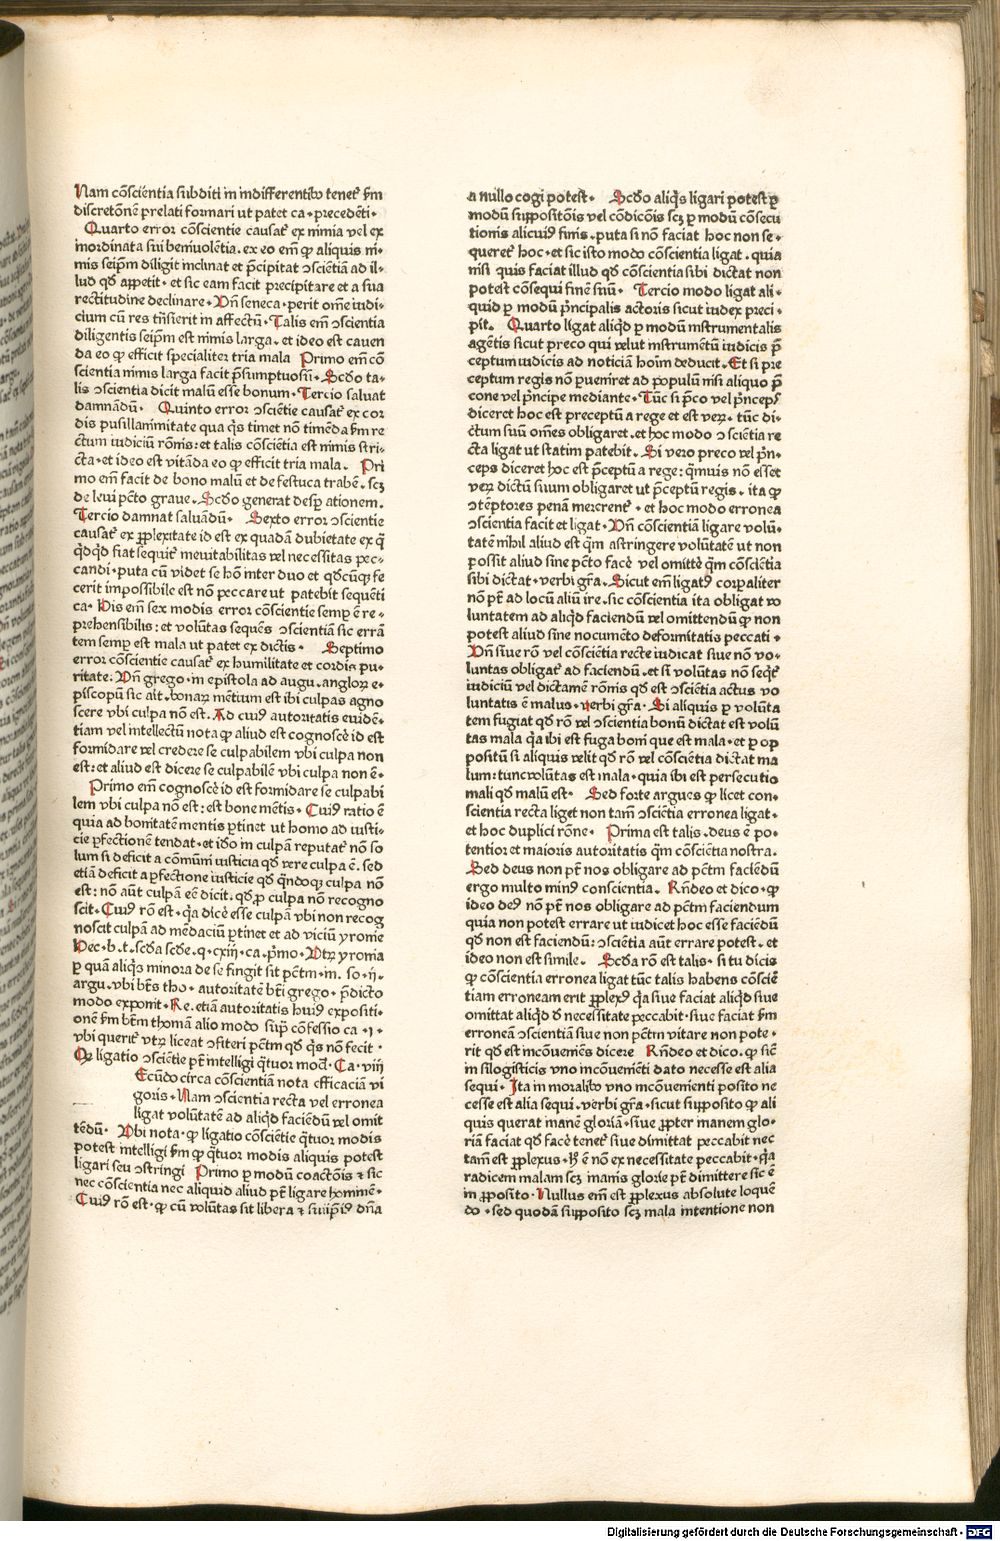 Nam cõscientia subditi in indifferentibꝰ tenet᷑ ẜm
discretõnẽ prelati formari ut patet ca. precedẽti.
Quarto error cõscientie causat᷑ ex nimia vel ex
inordinata sui beniuolẽtia. ex eo em̃ ꝙ aliquis ni-
mis seip̃m diligit inclinat et p̃cipitat ɔsciẽtiã ad il-
lud qđ appetit. et sic eam facit precipitare et a sua
rectitudine declinare. Vñ seneca. perit om̃e iudi-
cium cũ res trãsierit in affectũ. Talis em̃ ɔscientia
diligentis seip̃m est nimis larga. et ideo est cauen
da eo ꝙ efficit specialiter tria mala Primo em̃ cõ
scientia nimis larga facit p̃sumptuosũ. Scđo ta-
lis ɔscientia dicit malũ esse bonum. Tercio saluat
damnãdũ. Quinto error ɔsciẽtie causat᷑ ex cor
dis pusillanimitate qua q̃s timet nõ timẽda ẜm re
ctum iudiciũ rõnis: et talis cõsciẽtia est nimis stri-
cta. et ideo est vitãda eo ꝙ efficit tria mala. Pri
mo em̃ facit de bono malũ et de festuca trabẽ. scꝫ
de leui pc̃to graue. Scđo generat desꝑationem.
Tercio damnat saluãdũ. Sexto error ɔscientie
causat᷑ ex ꝑplexitate id est ex quadã dubietate ex q̃
q̃dq̃d fiat sequit᷑ ineuitabilitas vel necessitas pec-
candi. puta cũ videt se hõ inter duo et qđcũqꝫ fe
cerit impossibile est nõ peccare ut patebit sequẽti
ca. His em̃ sex modis error cõscientie semꝑ ẽ re-
prehensibilis: et volũtas sequẽs ɔscientiã sic errã
tem semꝑ est mala ut patet ex dictis. Septimo
error cõscientie causat᷑ ex humilitate et cordis pu-
ritate. Vñ grego. in epistola ad augu. angloꝝ e-
piscopũ sic ait. bonaꝝ mẽtium est ibi culpas agno
scere vbi culpa nõ est. Ad cuiꝰ autoritatis euidẽ-
tiam vel intellectũ nota ꝙ aliud est cognoscẽ id est
formidare vel credere se culpabilem vbi culpa non
est: et aliud est dicere se culpabilẽ vbi culpa non ẽ.
Primo em̃ cognoscẽ id est formidare se culpabi
lem vbi culpa nõ est: est bone mẽtis. Cuiꝰ ratio ẽ
quia ad bonitatẽ mentis ꝑtinet ut homo ad iusti-
cie ꝑfectionẽ tendat. et iđo in culpã reputat᷑ nõ so
lum si deficit a cõmũni iusticia qđ vere culpa ẽ. sed
etiã deficit a ꝑfectione iusticie qđ q̃ndoqꝫ culpa nõ
est: nõ aũt culpã eẽ dicit. qđ ꝓ culpa nõ recogno
scit. Cuiꝰ rõ est. q̃a dicẽ esse culpã vbi non recog
noscit culpã ad mẽdaciũ ꝑtinet et ad viciũ yronie
Hec. b. t. scđa scđe. q. cxiij. ca. p̃mo. Vtꝝ yronia
ꝑ quã aliq̃s minora de se fingit sit pc̃tm. in. so. ij.
argu. vbi bt̃s tho. autoritatẽ bt̃i grego. p̃dicto
modo exponit. Re. etiã autoritatis huiꝰ expositi-
onẽ ẜm bt̃m thomã alio modo sup̃ cõfessio ca. i.
vbi querit᷑ vtꝝ liceat ɔfiteri pc̃tm qđ q̃s nõ fecit.
Qꝫ ligatio ɔsciẽtie pt̃ intelligi q̃tuor mođ. Ca. viij
Ecũdo circa cõscientiã nota efficaciã vi
goris. Nam ɔscientia recta vel erronea
ligat volũtatẽ ad aliq̃d faciẽdũ vel omit
tẽdũ. Vbi nota. ꝙ ligatio cõsciẽtie q̃tuor modis
potest intelligi ẜm ꝙ q̃tuor modis aliquis potest
ligari seu ɔstringi Primo ꝑ modũ coactõis ⁊ sic
nec cõscientia nec aliquid aliud pt̃ ligare hominẽ.
Cuiꝰ rõ est. ꝙ cũ volũtas sit libera ⁊ suiip̃iꝰ dña
a nullo cogi potest. Scđo aliq̃s ligari potest ꝑ
modũ suppositõis vel cõdicõis scꝫ ꝑ modũ cõsecu
tionis alicuiꝰ finis. puta si nõ faciat hoc non se-
queret᷑ hoc. et sic isto modo cõscientia ligat. quia
nisi quis faciat illud qđ cõscientia sibi dictat non
potest cõsequi finẽ suũ. Tercio modo ligat ali-
quid ꝑ modũ p̃ncipalis actoris sicut iudex preci-
pit. Quarto ligat aliq̃d ꝑ modũ instrumentalis
agẽtis sicut preco qui velut instrumẽtũ iudicis p̃
ceptum iudicis ad noticiã hoĩm deducit. Et si pre
ceptum regis nõ ꝑueniret ad ꝓpulũ nisi aliquo p̃
cone vel p̃ncipe mediante. Tũc si p̃co vel p̃ncep̃s
diceret hoc est preceptũ a rege et est veꝝ. tũc di-
ctum suũ om̃es obligaret. et hoc modo ɔscientia re
cta ligat ut statim patebit. Si vero preco vel p̃n-
ceps diceret hoc est p̃ceptũ a rege: q̃muis nõ esset
veꝝ dictũ suum obligaret ut p̃ceptũ regis. ita ꝙ
ɔtẽptores penã mererent᷑. et hoc modo erronea
ɔscientia facit et ligat. Vñ cõscientiã ligare volũ-
tatẽ nihil aliud est q̃m astringere volũtatẽ ut non
possit aliud sine pc̃to facẽ vel omittẽ q̃m cõsciẽtia
sibi dictat. verbi gr̃a. Sicut em̃ ligatꝰ corꝑaliter
nõ pt̃ ad locũ aliũ ire. sic cõscientia ita obligat vo
luntatem ad aliq̃d faciendũ vel omittendũ ꝙ non
potest aliud sine nocumẽto deformitatis peccati.
Vñ siue rõ vel cõscientia recte iudicat siue nõ vo-
luntas obligat᷑ ad faciendũ. et si volũtas nõ seq̃t᷑
iudiciũ vel dictamẽ rõnis qđ est ɔsciẽtia actus vo
luntatis ẽ malus. verbi gr̃a. Si aliquis ꝑ volũta
tem fugiat qđ rõ vel ɔscientia bonũ dictat est volũ
tas mala q̃a ibi est fuga boni que est mala. et ꝑ op
positũ si aliquis velit qđ rõ vel cõscientia dictat ma
lum: tunc volũtas est mala. quia ibi est persecutio
mali qđ malũ est. Sed forte argues ꝙ licet con-
scientia recta liget non tam̃ ɔscientia erronea ligat.
et hoc duplici rõne. Prima est talis. deus ẽ po-
tentior et maioris autoritatis q̃m cõscientia nostra.
Sed deus non pt̃ nos obligare ad pc̃tm faciẽdũ
ergo multo minꝰ conscientia. Rñdeo et dico. ꝙ
ideo deꝰ nõ pt̃ nos obligare ad pc̃tm faciendum
quia non potest errare ut iudicet hoc esse faciẽdũ
qđ non est faciendũ: ɔsciẽtia aũt errare potest. et
ideo non est simile. Scđa rõ est talis. si tu dicis
ꝙ cõscientia erronea ligat tũc talis habens cõsciẽ
tiam erroneam erit ꝑplexꝰ q̃a siue faciat aliq̃d siue
omittat aliq̃d đ necessitate peccabit. siue faciat ẜm
erroneã ɔscientiã siue non pc̃tm vitare non pote-
rit qđ est incõueniẽs dicere Rñdeo et dico. ꝙ sic̃
in silogisticis vno incõuenẽti dato necesse est alia
sequi. Ita in moralibꝰ vno incõuenienti posito ne
cesse est alia sequi. verbi gr̃a. sicut supposito ꝙ ali
quis querat inanẽ gloriã. siue ꝓpter inanem glo-
riã faciat qđ facẽ tenet᷑ siue dimittat peccabit nec
tam̃ est ꝑplexus. hꝰ ẽ nõ ex necessitate peccabit. q̃a
radicem malam scꝫ inanis glorie pt̃ dimittere sic ẽ
in ꝓposito. Nullus em̃ est ꝑplexus absolute loquẽ
do. sed quodã supposito scꝫ mala intentione non
Digitalisierung gefördert durch die Deutsche Forschungsgemeinschaft - DFG